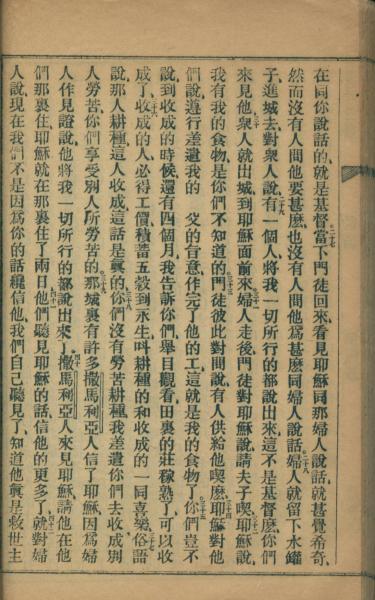 在同你說話的、就是基督。當下門徒回來、看見耶穌同那婦人說話、就甚覺希奇、
然而沒有人問他要甚麽、也沒有人問他爲甚麽同婦人說話。婦人就留下水罐
子、進城去、對衆人說、有一個人將我一切所行的都說出來、這不是基督麽、你們
來見他。衆人就出城到耶穌面前來。婦人走後、門徒對耶穌說、請夫子喫。耶穌說、
我有我的食物、是你們不知道的。門徒彼此對問說、有人供給他喫麽。耶穌對他
們說、遵行差遣我的 父的旨意、作完了他的工、這就是我的食物了。你們豈不
說、到收成的時候、還有四個月、我告訴你們、舉目觀看、田裏的莊稼熟了、可以收
成了。收成的人、必得工價、積蓄五穀到永生、叫耕種的和收成的一同喜樂。俗語
說、那人耕種、這人收成、這話是眞的。你們沒有勞苦耕種、我差遣你們去收成、別
人勞苦、你們享受別人所勞苦的。那城裏有許多撒馬利亞人信了耶穌、因爲婦
人作見證說、他將我一切所行的都說出來了。撒馬利亞人來見耶穌、請他在他
們那裏住、耶穌就在那裏住了兩日。他們聽見耶穌的話、信他的更多了。就對婦
人說、現在我們不是因爲你的話纔信他、我們自己聽見了、知道他眞是救世主